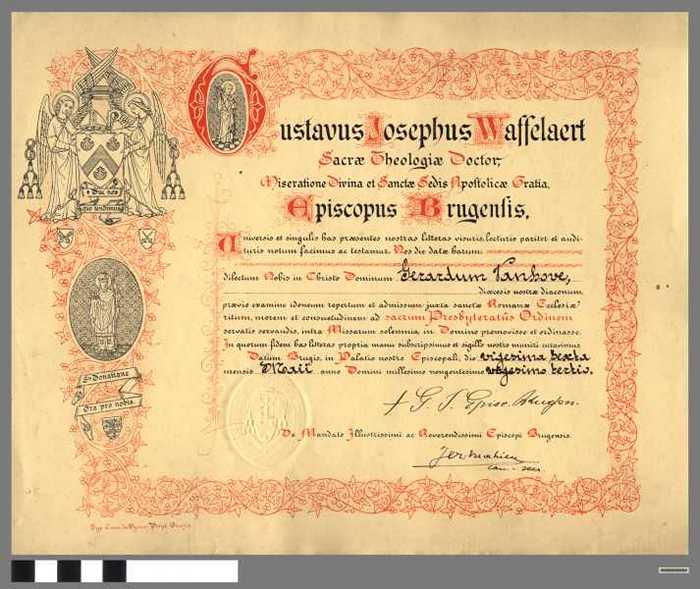 Gustavus Josephus Waffelaert
Sacræ Theologiæ Doctor,
Miseratione Divina et Sanctæ Sedis Apostolicæ Gratia,
Episcopus Brugensis.
Universis et singulis has præsentes nostras litteras visuris, lecturis pariter et audi-
turis notum facimus ac testamur, Nos die datæ harum
dilectum Nobis in Christo Dominum Gerardum Vanhove,
diœcesis nostræ diaconum
prævio examine idoneum repertum et admissum juxta sanctæ Romanæ Ecclesiæ
ritum, morem et consuetudinem ad sacrum Presbyteratûs Ordinem
servatis servandis, intra Missarum solemnia, in Domino promovisse et ordinasse.
In quorum fidem has litteras propria manu subscripsimus et sigillo nostro muniri curavimus.
Datum Brugis, in Palatio nostro Episcopali, die vigesima sexta
mensis Maii anno Domini millesimo nongentesimo vigesimo tertio.
+ G. J. Episc. Brugen.
De Mandato Illustrissimi ac Reverendissimi Episcopi Brugensis.
can. secr.
S. Donatiane
Ora pro nobis